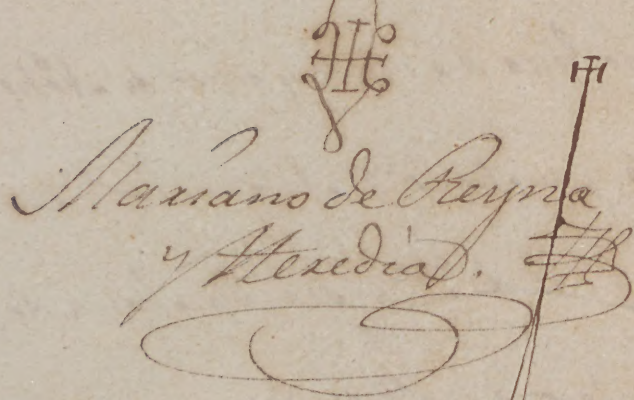 Mariano de Reyna
y Heredia.